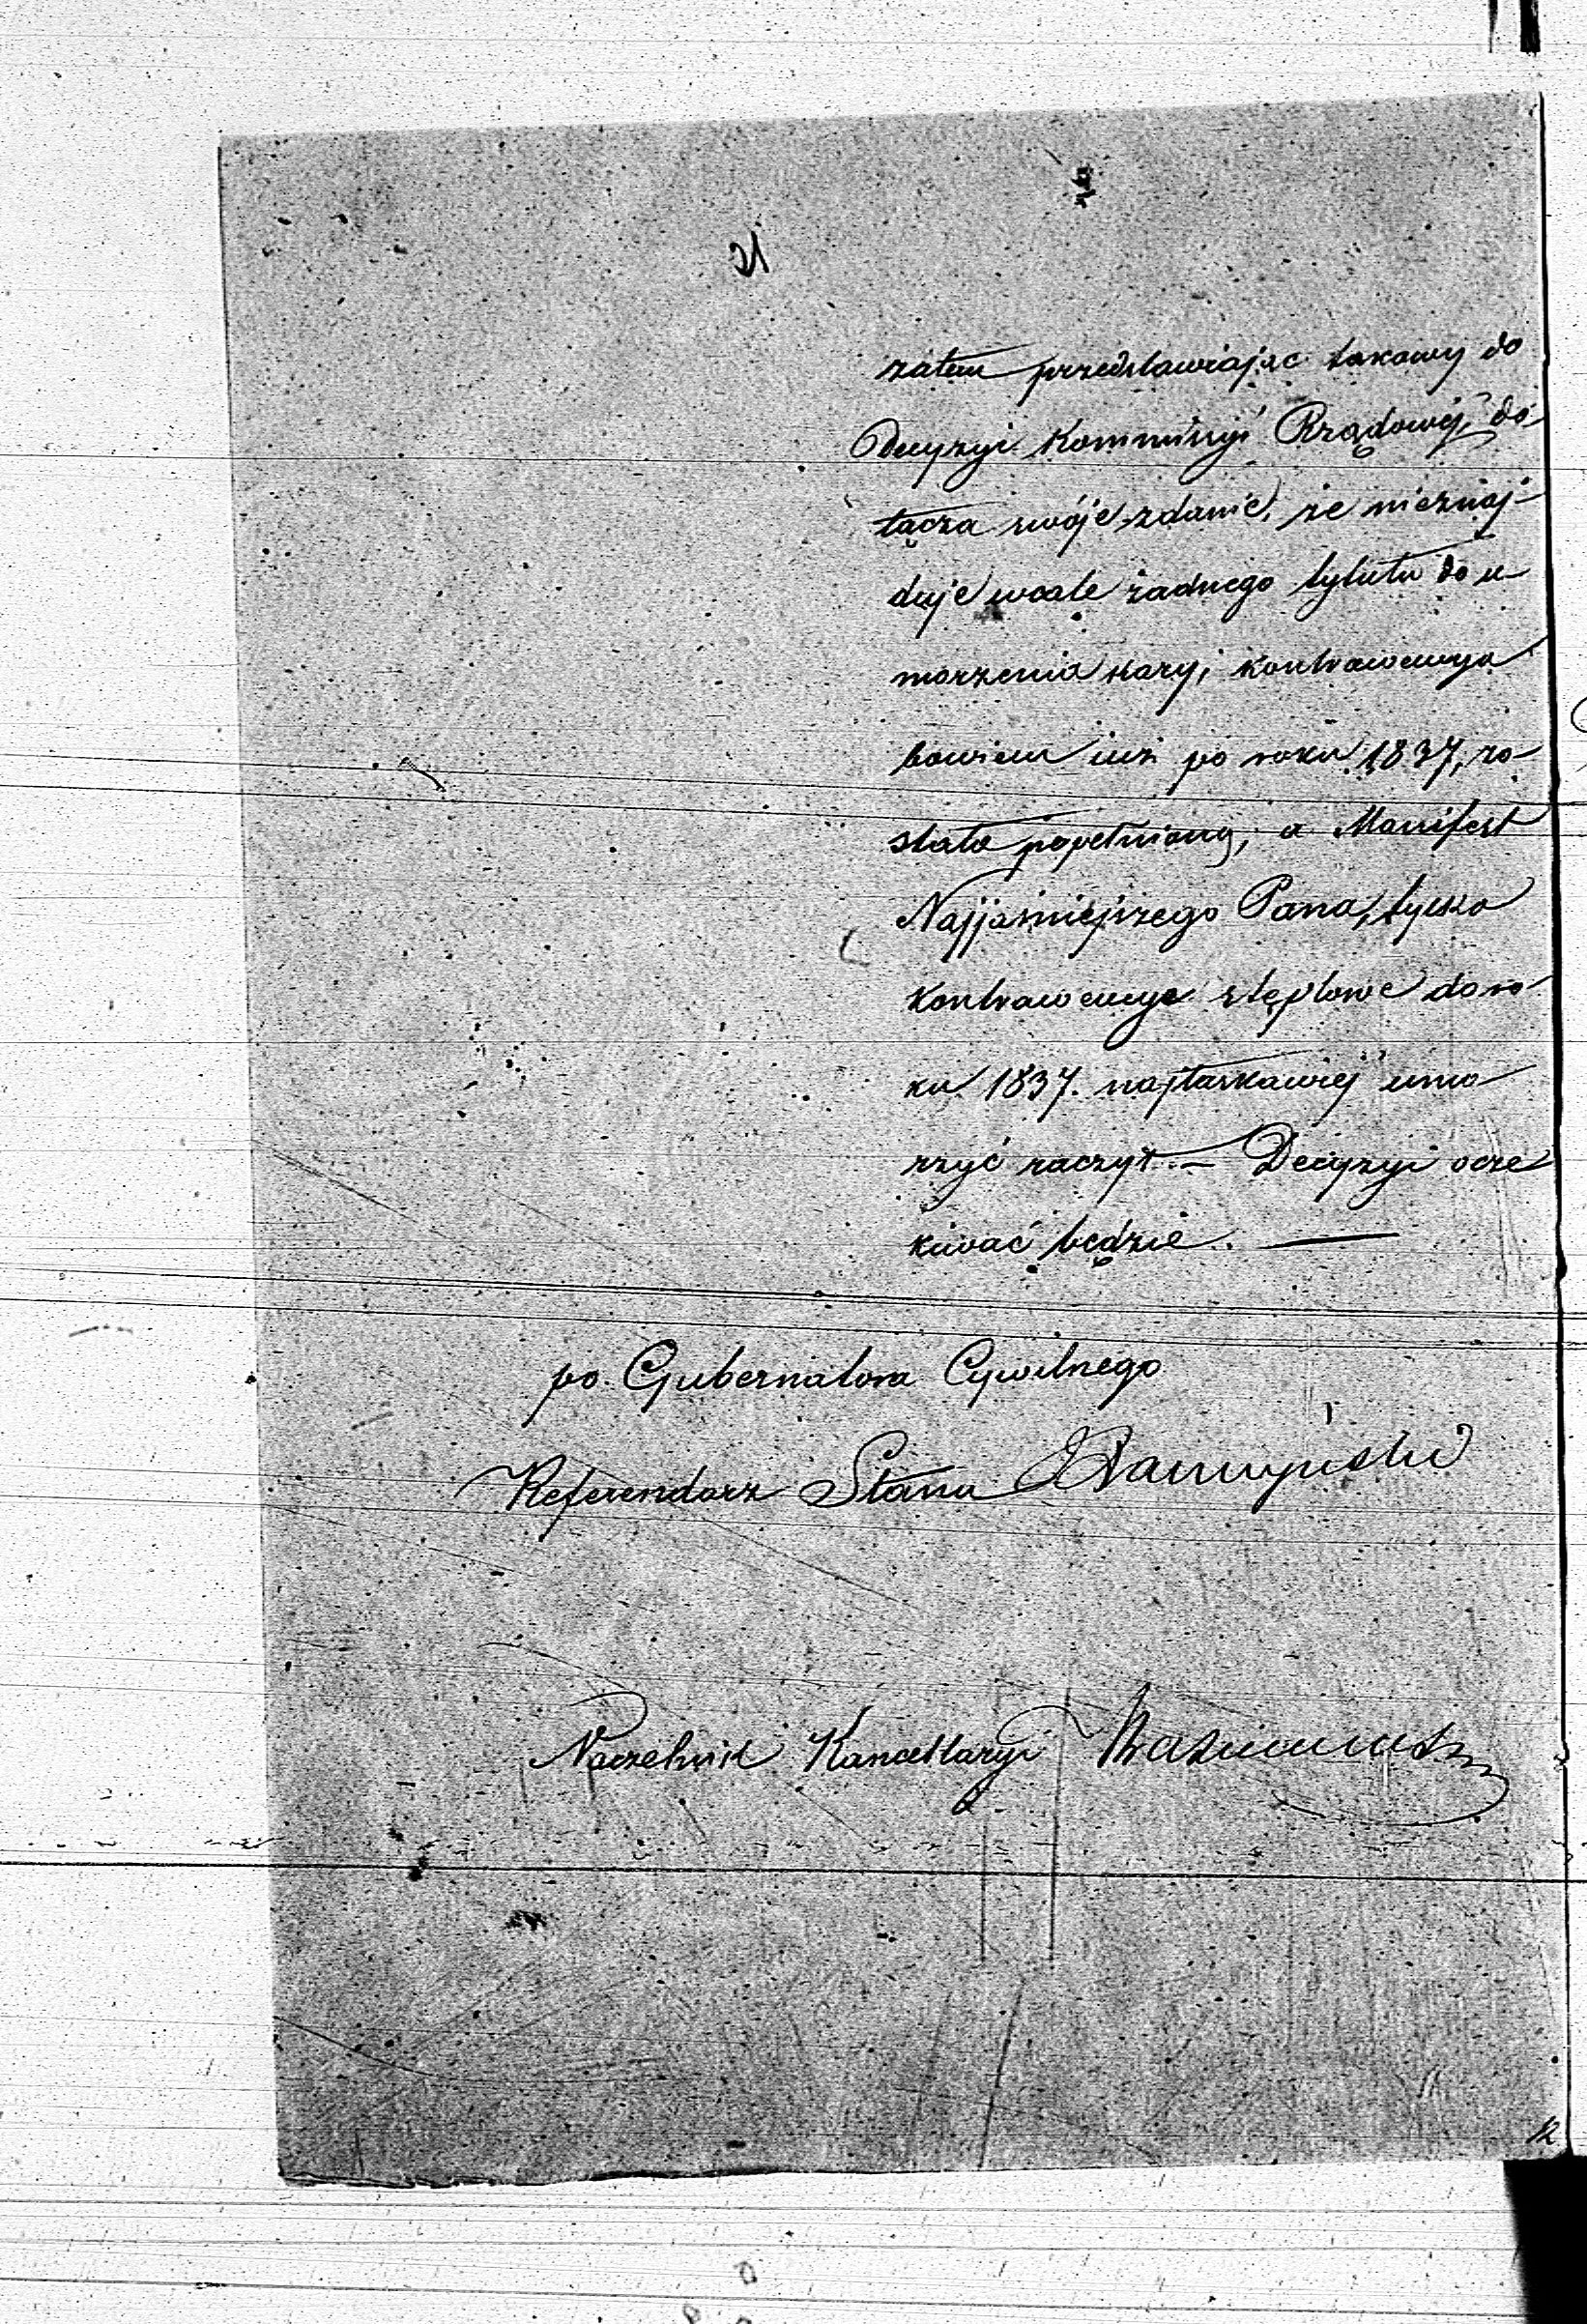 21
zatem przedstawiając takowy do
Decyzyi Kommissyi Rządowéj, do-
łącza swóje zdanie, że nieznaj-
duje wcale żadnego tytułu do u-
morzenia kary, kontrawencya
bowiem iuż po roku 1837, zo-
stała popełnioną, a Manifest
Najjaśniejszego Pana, tylko
Kontrawencye stęplowe do ro-
ku 1837. najłaskawiéj umo-
rzyć raczył. — Decyzyi ocze
kiwać będzie. —
po. Gubernatora Cywilnego
Referendarz Stanu
Naczelnik Kancellaryi
12